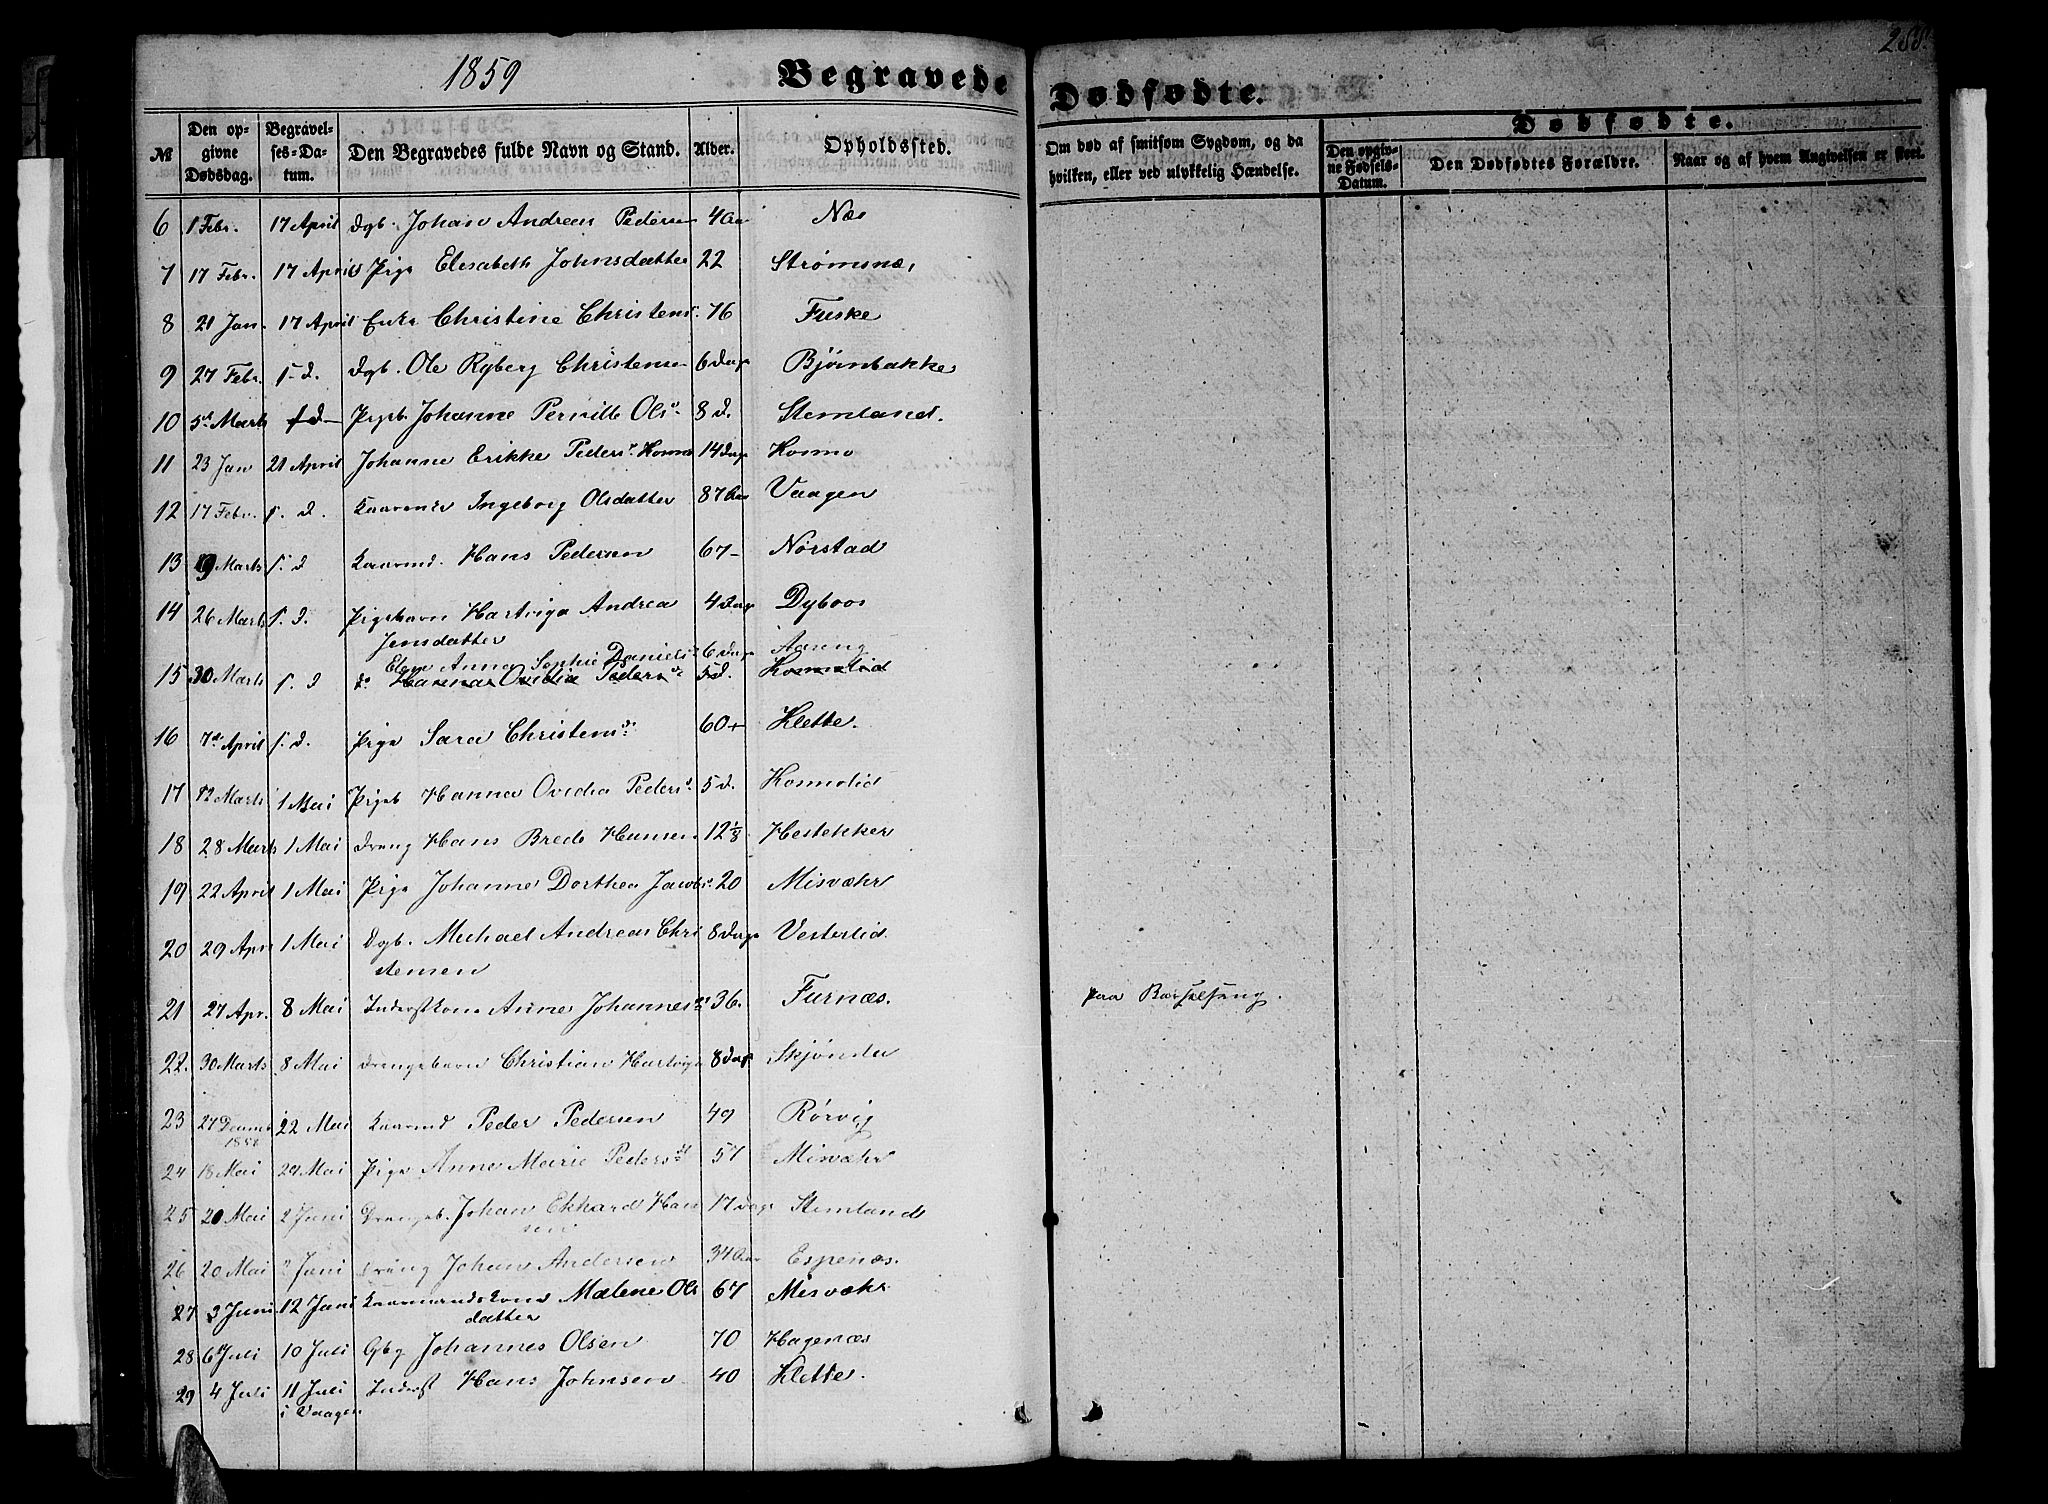 1859 Begravede
Dødfødte. 288.
№
Den opgivne Dødsdag.
Begravelses-Datum.
Den Begravedes fulde Navn og Stand.
Alder.
Opholdssted.
Om død af smitsom Sygdom, og da hvilken, eller ved ulykkelig Hændelse.
Dødfødte.
Den opgivne Fødsels-Datum.
Den Dødfødtes Forældre.
Naar og af hvem Angivelsen er skeet.
6 1 Febr. 17 April Dgb. Johan Andreas Pedersen 4 Aar Næs
7 17 Febr. 17 April Pige Elesabeth Johnsdatter 22 Strømsnæs
8 21 Jan. 17 April Enke Christine Christens. 76 Fuske
9 27 Febr. s. d. Dgb. Ole Ryberg Christensen 6 Dage Bjørnbakke
10 5d Marts s d Pigeb Johanne Pernille Olsd. 8 d. Stemland.
11 23 Jan 21 April Johanne Erikke Peders. Kosmo 14 Dage Kosmo
12 17 Febr. s. d. Kaarenke Ingeborg Olsdatter 87 Aar Vaagen
13 19 Marts s. d Kaarmd. Hans Pedersen 67 Nørstad
14 26 Marts s. d. Pigebarn Hartviga Andrea 4 Dage Dyboos
Jensdatter
Elen Anna Sophie Daniels. 6 Dage Aaseng
15 30 Marts s. d do Hanna Ovidia Peders. 5 d. Kosmolid
16 7d April s. d. Pige Sara Christensd. 60 Klette.
17 12 Marts 1 Mai Pigeb Hanna Ovidia Pedersd. 5 d. Kosmolid
18 28 Marts 1 Mai Dreng Hans Brede Hansen 12 1/8 Hestekker
19 22 April 1 Mai Pige Johanne Dorthea Jacobsd. 20 Misvæhr
20 29 Apr 1 Mai Dgb. Michael Andreas Chri 8 Dage Vesterlid.
stensen
21 27 Apr. 8 Mai Inderstkone Anne Johannesd. 36. Furnæs. paa Barselseng.
22. 30 Marts 8 Mai Drengebarn Christian Hartvigs 8 Dage Skjønsta
23 27 Decemb 22 Mai Kaarmd Peder Pedersen 49 Rørvig
1858
24 18 Mai 29 Mai Pige Anne Marie Pedersdt 57 Misvæhr
25 20 Mai 2 Juni Drengeb. Johan Ekhard Han 17 Dage Stemland
sen
26 20 Mai 2 Juni Dreng Johan Andersen 34 Aar Espenæs.
27 3 Juni 12 Juni Kaarmandskone Malene Ols 67 Misvæhr
datter
28 6 Juli 10 Juli Gbg Johannes Olsen 70 Hagenæs
29 4 Juli 11 Juli Inderst Hans Johnsen 40 Klette.
i Vaagen